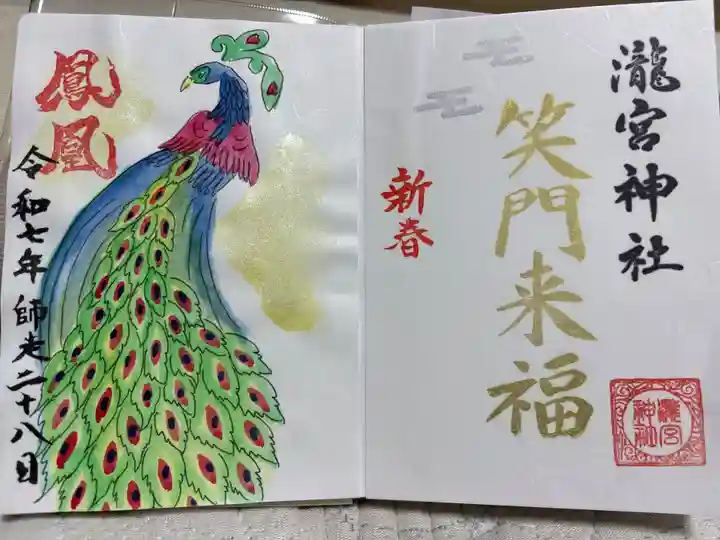 瀧宮神社
笑門来福
新春
瀧宮
神社
鳳凰
令和七年 師走二十八日